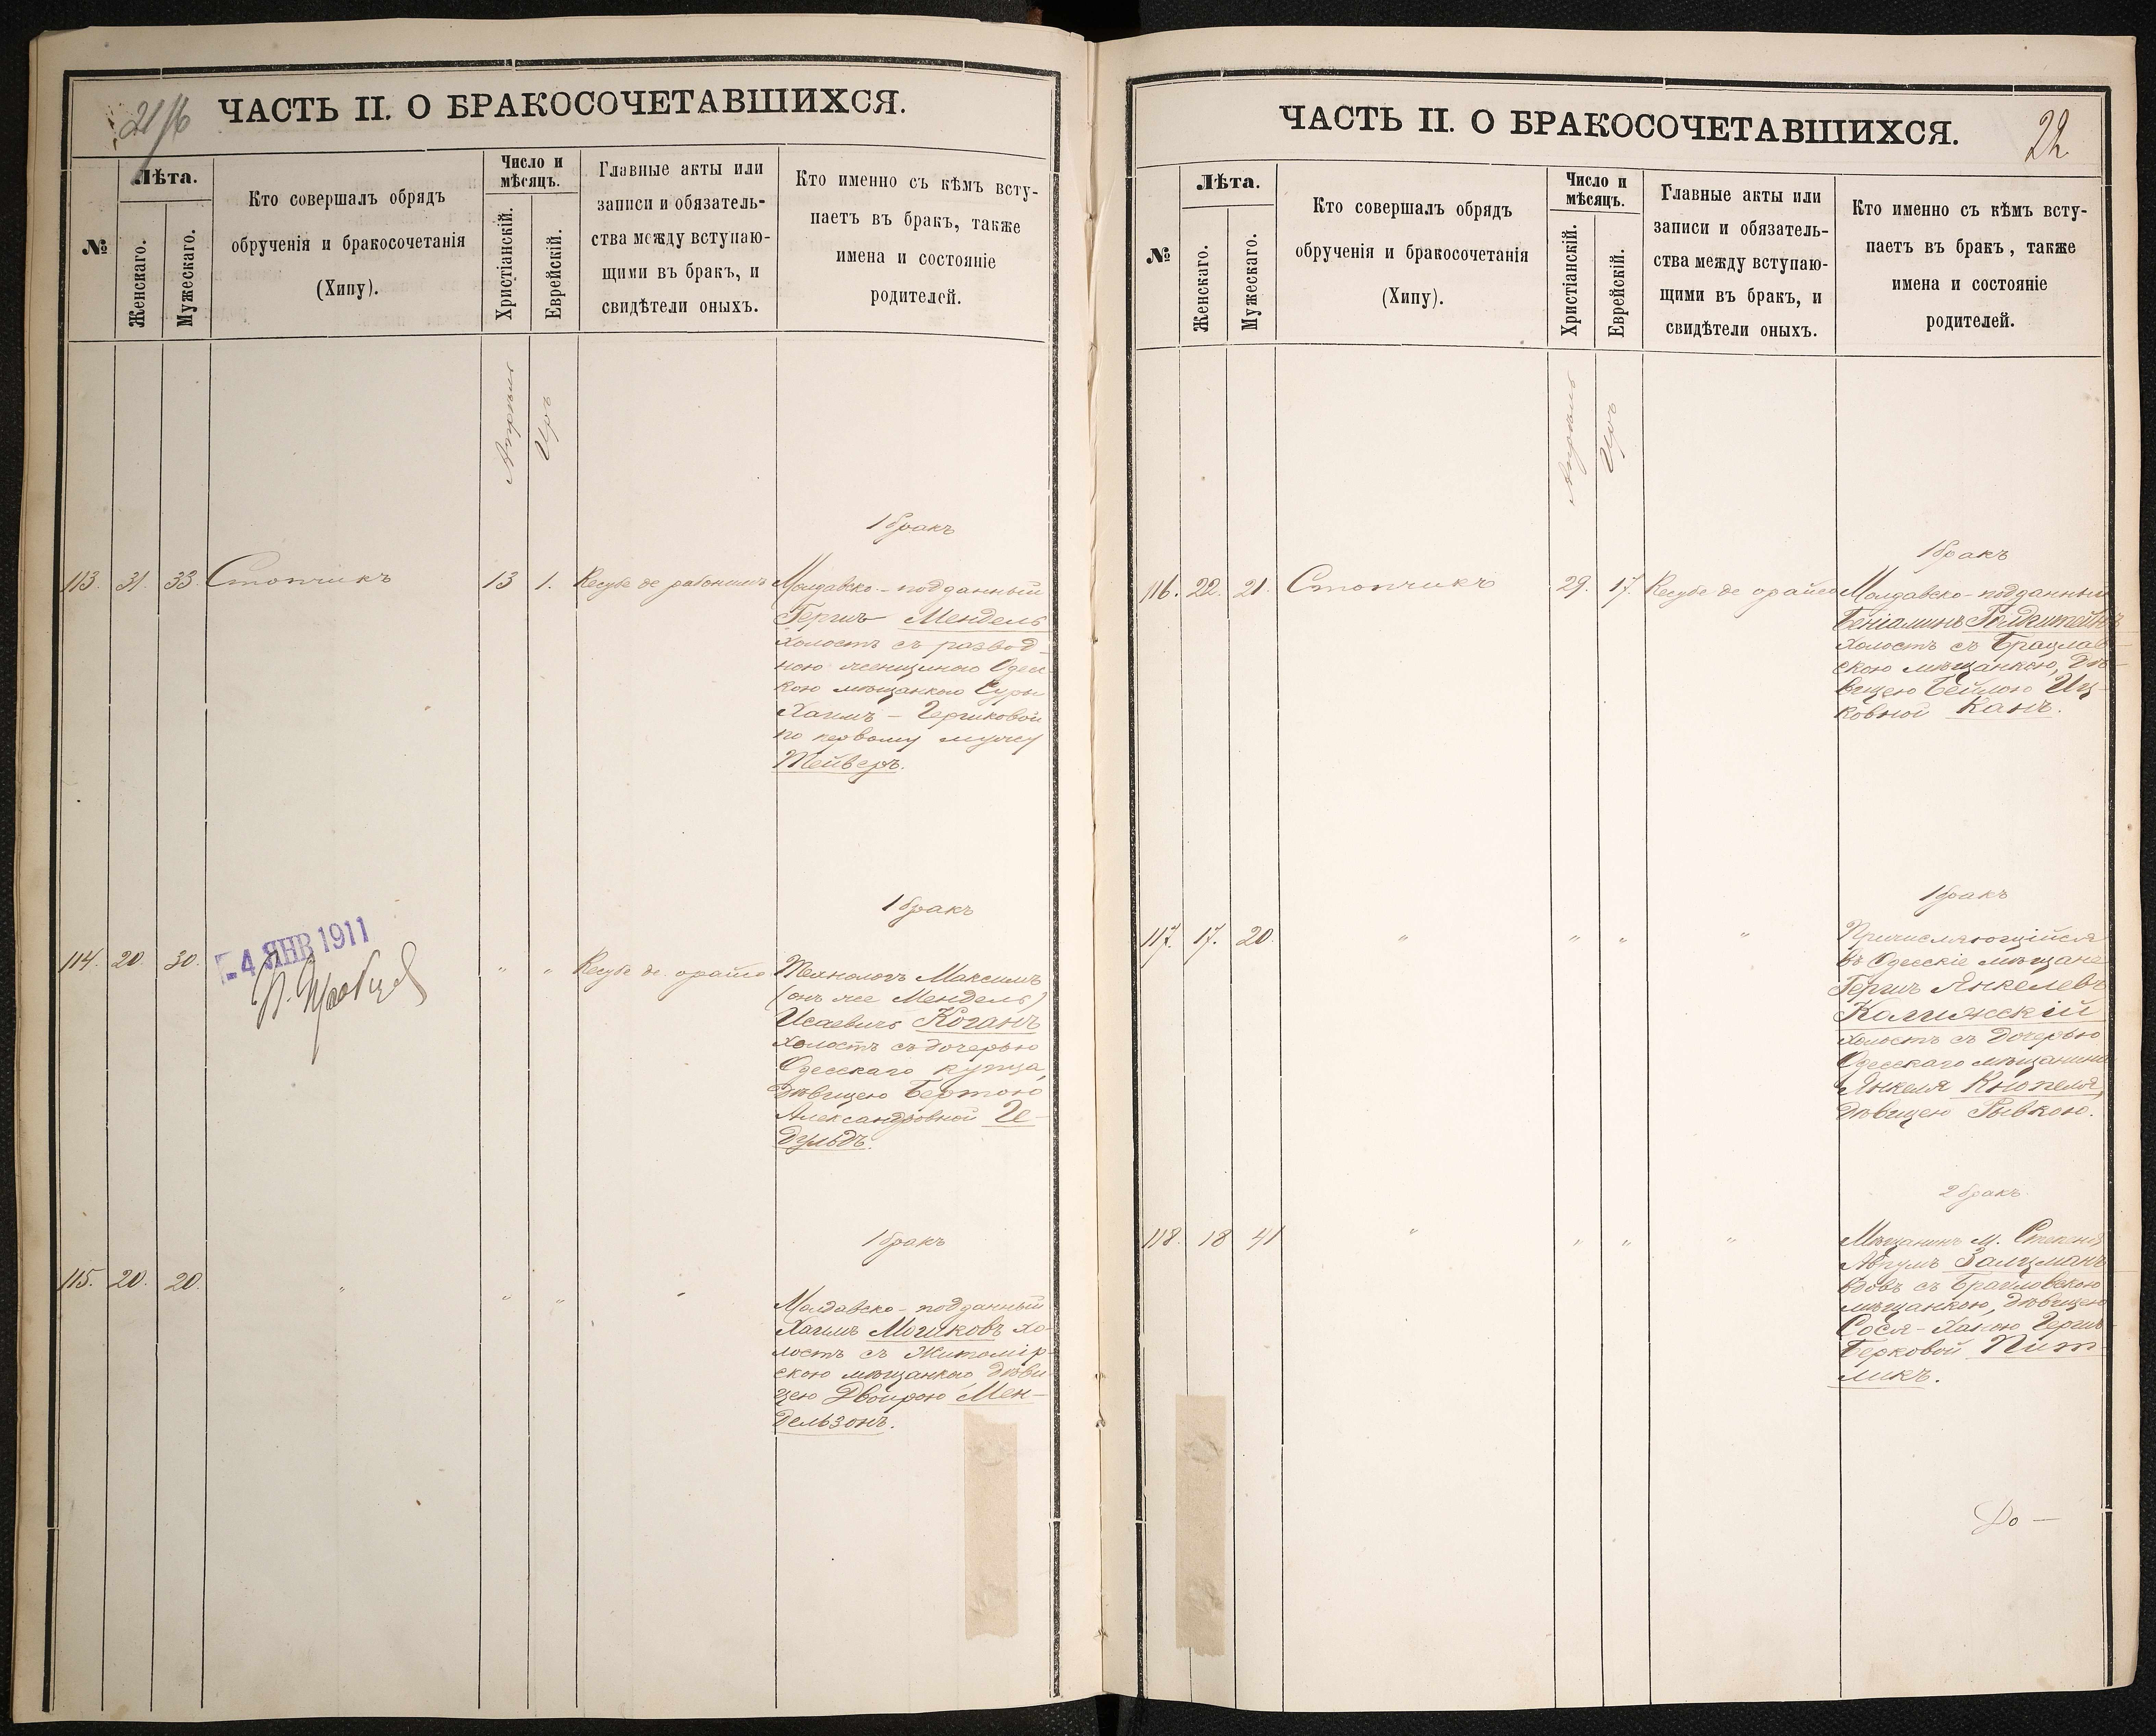 21/16
ЧАСТЬ II. О БРАКОСОЧЕТАВШИХСЯ.
№
Лѣта.
Женскаго.
Мужескаго.
Кто совершалъ обрядъ
обрученія и бракосочетанія
(Хипу).
Число и
мѣсяцъ.
Христіанскій.
Еврейскій.
Главные акты или
записи и обязатель-
ства между вступаю-
щими въ бракъ, и
свидѣтели оныхъ.
Кто именно съ кѣмъ всту-
паетъ въ бракъ, также
имена и состояніе
родителей.
Апрѣль
Иръ
1 бракъ
113. 31. 33. Стопчикъ 13 1. Кесубе де
Молдавско-подданный
Гершъ Мендель
холостъ съ развод-
ною женщиною Одес
кою мѣщанкою Суры
Хаимъ-Гершковой
по первому мужу
Тейверъ.
1 бракъ
114. 20. 30. " " Кесубе де орайсо
-4 ЯНВ 1911
Технологъ Максимъ
(онъ же Мендель)
Исаевичъ Коганъ
холостъ съ дочерью
Одесскаго купца,
дѣвицею Бертою
Александровной Ге-
дульдъ.
1 бракъ
115. 20. 20. " " " "
Молдавско-подданный
Хаимъ Мошковъ хо-
лостъ съ Житомір-
скою мѣщанкою, дѣви
цею Двойрою Мен-
дельзонъ.
22
ЧАСТЬ II. О БРАКОСОЧЕТАВШИХСЯ.
№
Лѣта.
Женскаго.
Мужескаго.
Кто совершалъ обрядъ
обрученія и бракосочетанія
(Хипу).
Число и
мѣсяцъ.
Христіанскій.
Еврейскій.
Главные акты или
записи и обязатель-
ства между вступаю-
щими въ бракъ, и
свидѣтели оныхъ.
Кто именно съ кѣмъ всту-
паетъ въ бракъ, также
имена и состояніе
родителей.
Апрѣль
Иръ
1 бракъ
116. 22. 21. Стопчикъ 29. 17. Кесубе де орайсо
Молдавско-подданный
Беніаминъ Гольдштейнъ
холостъ съ Брацлав-
скою мѣщанкою, дѣ-
вицею Бейлою Иц-
ковной Канъ.
1 бракъ
117. 17. 20. " " " "
Причисляющійся
въ Одесскіе мѣщане
Гершъ Янкелевъ
Калижскій
холостъ съ дочерью
Одесскаго мѣщанина
Янкеля Кнопеля,
дѣвицею Рывкою.
2 бракъ
118. 18 41 " " " "
Мѣщанинъ м.
Абрумъ Залцманъ
вдовъ съ Браиловскою
мѣщанкою, дѣвицею
Сося-Ханою Гершъ-
Берковой Пит-
ликъ.
До —